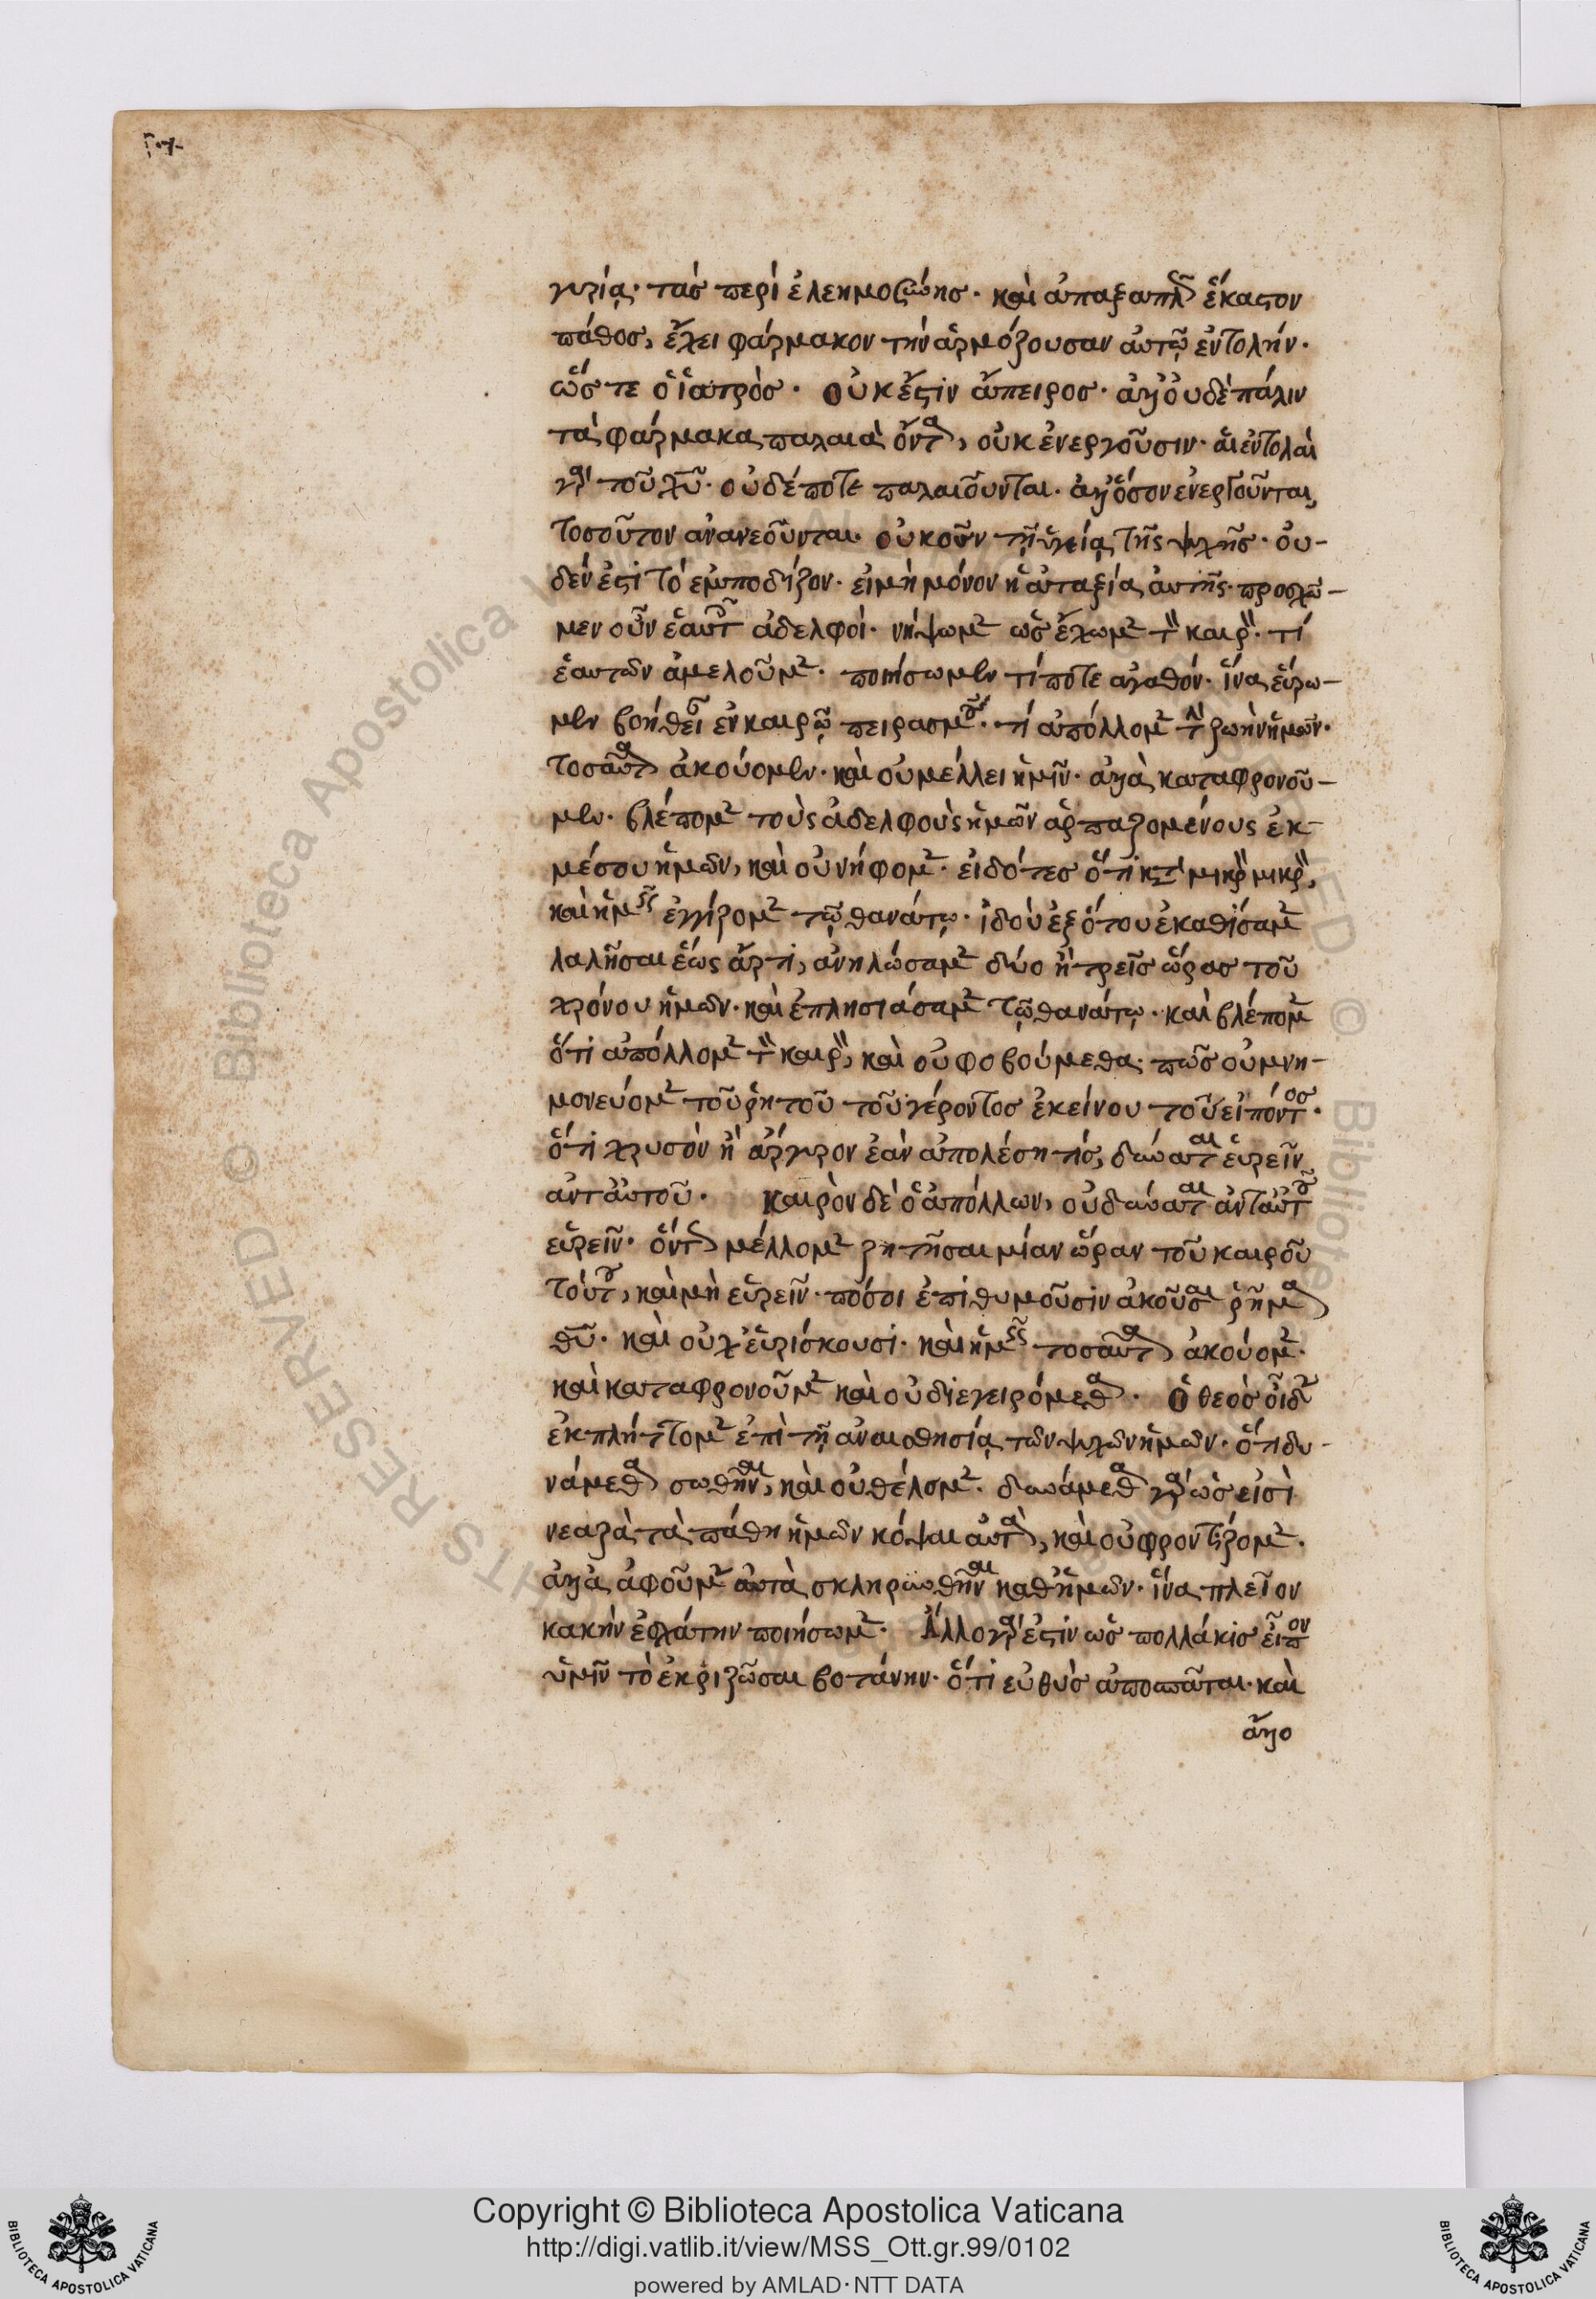 γυρία· τὰς περὶ ἐλεημοσύνης· καὶ ἁπαξαπλῶς ἕκαστον
πάθος, ἔχει φάρμακον τὴν ἁρμόζουσαν αὐτῷ ἐντολήν·
ὥστε ὁ ἰατρὸς· οὐκ ἔστιν ἄπειρος· ἀλλ' οὐδὲ πάλιν
τὰ φάρμακα παλαιὰ ὄντα, οὐκ ἐνεργοῦσιν· αἱ ἐντολαὶ
γὰρ τοῦ χῦ· οὐδέποτε παλαιοῦνται· ἀλλ' ὅσον ἐνεργοῦνται,
τοσοῦτον ἀνανεοῦνται· οὐκοῦν τῇ ὑγείᾳ τῆς ψχῆς· οὐ-
δέν ἐστι τὸ ἐμποδίζον· εἰ μὴ μόνον ἡ ἀταξία αὐτῆς· προσχῶ-
μεν οὖν ἑαυτοῖς ἀδελφοί· νήψωμεν ὡς ἔχωμεν τὸν καιρόν· τί
ἑαυτῶν ἀμελοῦμεν· ποιήσωμεν τί ποτε ἀγαθόν· ἵνα εὕρω-
μεν βοήθειαν ἐν καιρῷ πειρασμοῦ· τί ἀπόλλομεν τὴν ζωὴν ἡμῶν·
τοσαῦτα ἀκούομεν· καὶ οὐ μέλλει ἡμῖν· ἀλλὰ καταφρονοῦ-
μεν· βλέπομεν τοὺς ἀδελφοὺς ἡμῶν ἁρπαζομένους ἐκ
μέσου ἡμῶν, καὶ οὐ νήφομεν· εἰδότες ὅτι κατὰ μικρὸν μικρὸν,
καὶ ἡμεῖς ἐγγίζομεν τῷ θανάτῳ· ἰδοὺ ἐξ ὅτου ἐκαθίσαμεν
λαλῆσαι ἕως ἄρτι, ἀνηλώσαμεν δύο ἢ τρεῖς ὥρας τοῦ
χρόνου ἡμῶν· καὶ ἐπλησιάσαμεν τῷ θανάτῳ· καὶ βλέπομεν
ὅτι ἀπόλλομεν τὸν καιρὸν, καὶ οὐ φοβούμεθα· πῶς οὐ μνη-
μονεύομεν τοῦ ῥητοῦ τοῦ γέροντος ἐκείνου τοῦ εἰπόντος·
ὅτι χρυσὸν ἢ ἄργυρον ἐὰν ἀπολέσῃ τίς, δύναται εὑρεῖν
ἀντ' αὐτοῦ· καιρὸν δὲ ὁ ἀπόλλων, οὐ δύναται ἀντ' αὐτοῦ
εὑρεῖν· ὄντως μέλλομεν ζητῆσαι μίαν ὥραν τοῦ καιροῦ
τούτου, καὶ μὴ εὑρεῖν· πόσοι ἐπιθυμοῦσιν ἀκοῦσαι ῥῆμα
θῦ· καὶ οὐχ εὑρίσκουσι· καὶ ἡμεῖς τοσαῦτα ἀκούομεν·
καὶ καταφρονοῦμεν καὶ οὐ διεγειρόμεθα· ὁ θεὸς οἶδεν
ἐκπλήττομεν ἐπὶ τῇ ἀναισθησίᾳ τῶν ψχῶν ἡμῶν· ὅτι δυ-
νάμεθα σωθῆναι, καὶ οὐ θέλομεν· δυνάμεθα γὰρ ὡς εἰσὶ
νεαρὰ τὰ πάθη ἡμῶν κόψαι αὐτὰ, καὶ οὐ φροντίζομεν·
ἀλλὰ ἀφοῦμεν αὐτὰ σκληρυνθῆναι καθ' ἡμῶν· ἵνα πλεῖον
κακὴν ἐσχάτην ποιήσωμεν· Ἄλλο γάρ ἐστιν ὡς πολλάκις εἶπον
ὑμῖν τὸ ἐκριζῶσαι βοτάνην· ὅτι εὐθὺς ἀποσπᾶται· καὶ
ἄλλο